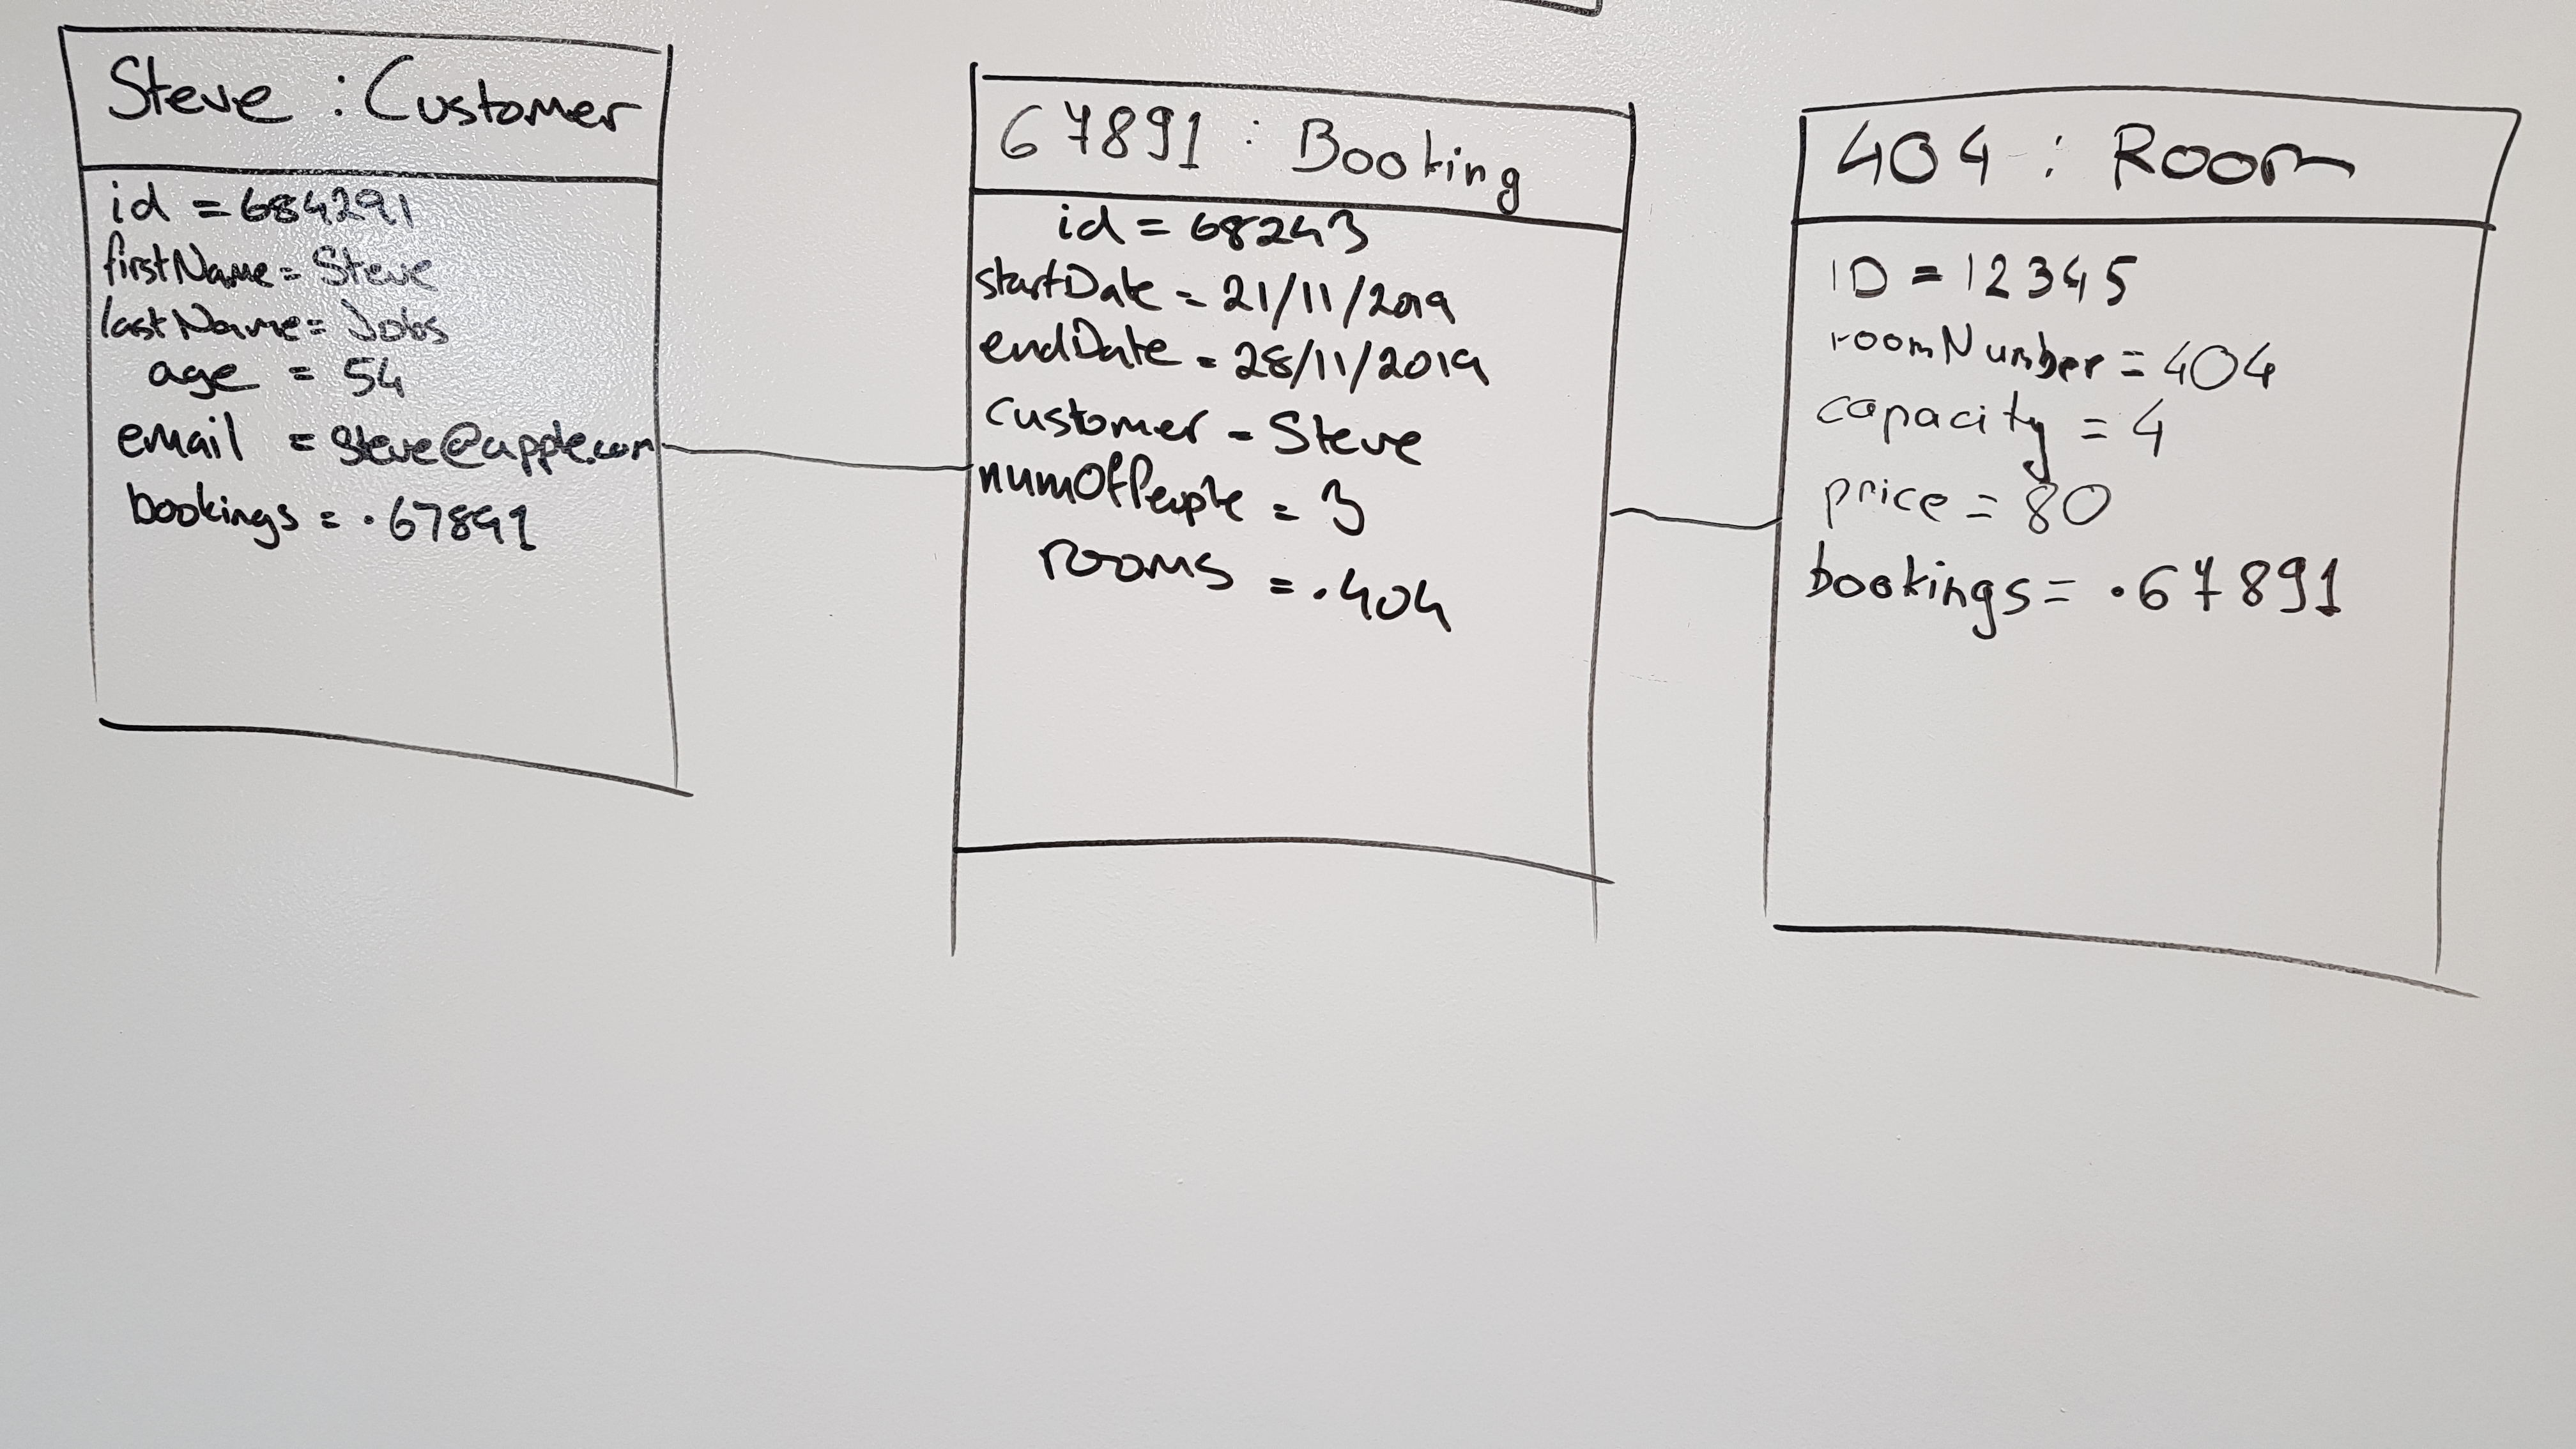 Steve : Customer
id = 684291
firstName = Steve
lastName = Jobs
age = 54
email = steve@apple.com
bookings = . 67891
67891 : Booking
id = 68243
startDate = 21/11/2019
endDate = 28/11/2019
customer = Steve
numOfPeople = 3
rooms = . 404
404 : Room
ID = 12345
roomNumber = 404
capacity = 4
price = 80
bookings = . 67891